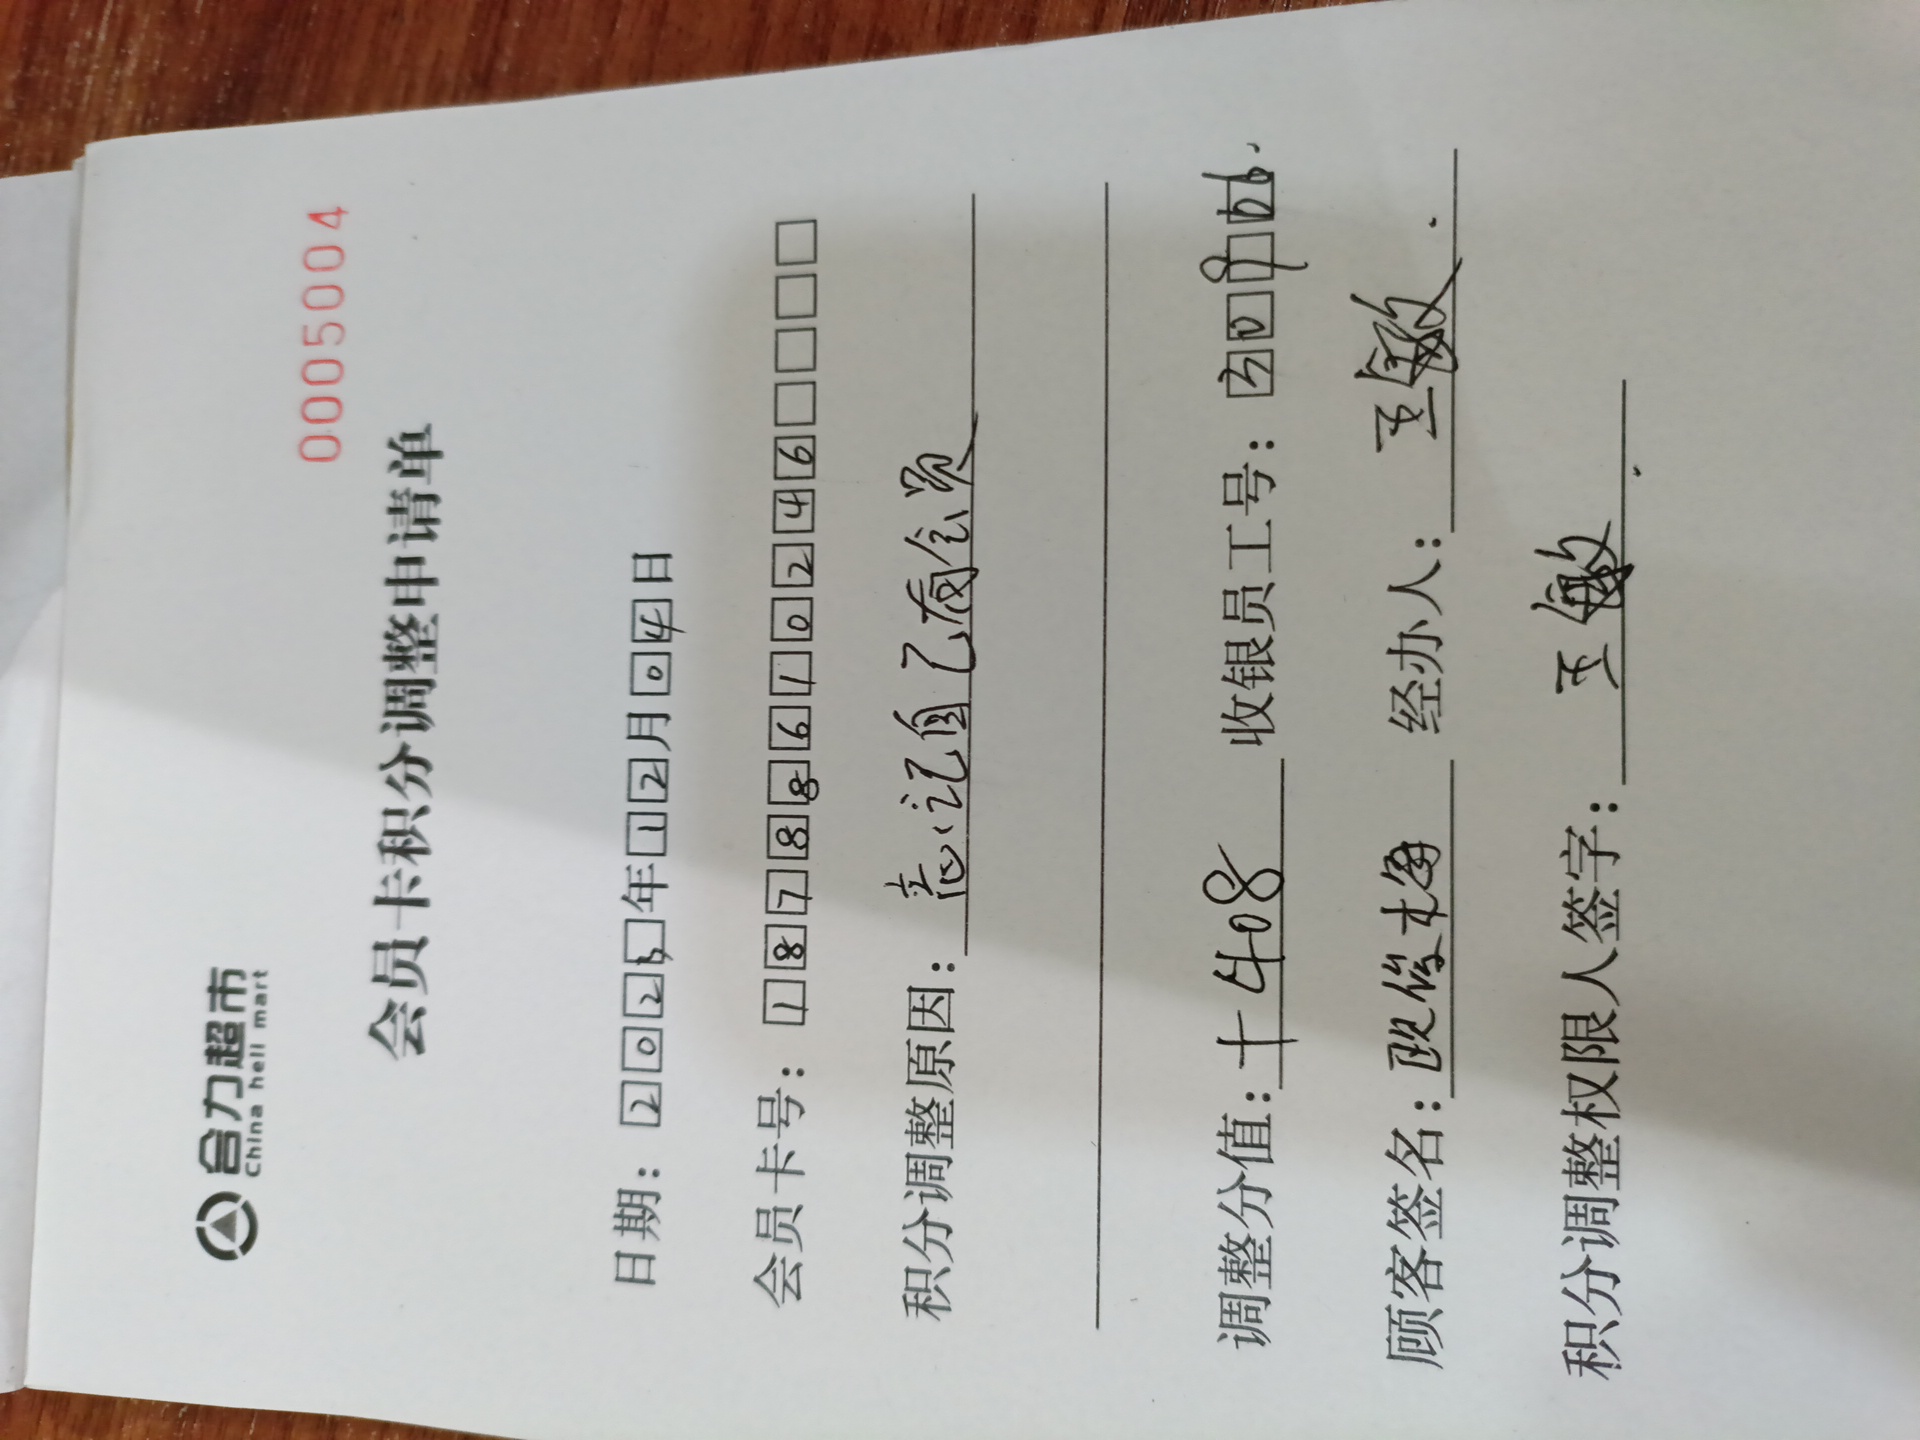 合力超市
China hell mart
0005004
会员卡积分调整申请单
日期：2023年12月04日
会员卡号：18788610246
积分调整原因：忘记自己有会员
调整分值：+408 收银员工号：3096
顾客签名：欧俊梅 经办人：王敏
积分调整权限人签字：王敏